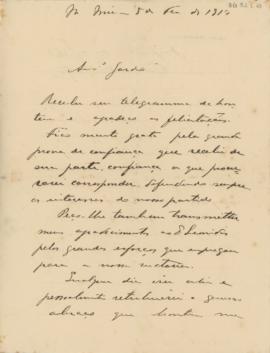 5 de Fev de 1910
Recebi seu telegramma de hon
tem e agradeço as felicitações.
Fico muito grato pela grande
prova de confiança que recebi de
sua parte, confiança a que
corresponder, defendendo sempre
os interesses do nosso partido
Peço-lhe tambem transmetter
meus agradecimentos ao
pelos grandes esforços que empregou
para a nossa victoria.
Qualquer dia irei ahi e
pessoalmente retribuirei o
abraço que